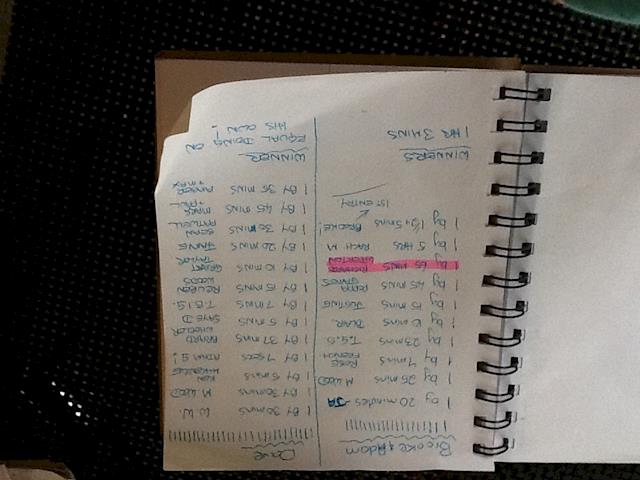 Brooke & Adam
1 by 20 minutes - JA
1 by 26 mins M WOOD
1 by 7 mins ROSE
FRENCH
1 by 23 mins T.S.S
1 by 10 mins BLAIR
1 by 15 mins JUSTINE
1 by 45 mins
1 by 65 mins RICHARD
1 by 5 HRS RACH M
1 by 45 mins BROOKE!
1ST ENTRY
WINNERS
1 HR 3 MINS
Dave
1 BY 30 mins W.W.
1 BY 30 mins M. WOOD
1 BY 6 mins KEN
1 BY 7 secs ADAM S!
1 BY 37 mins
WHEELER
1 BY 5 mins SAYED
1 BY 7 mins T.B.I.S.
1 BY 15 mins REUBEN
WOODS
1 BY 10 mins GRANT
TAYLOR
1 BY 20 mins JANINE
1 BY 30 mins SEAN
1 BY 45 mins MARK
1 BY 35 mins
+ MAX
WINNER
EQUAL DOING ON
HIS OWN!